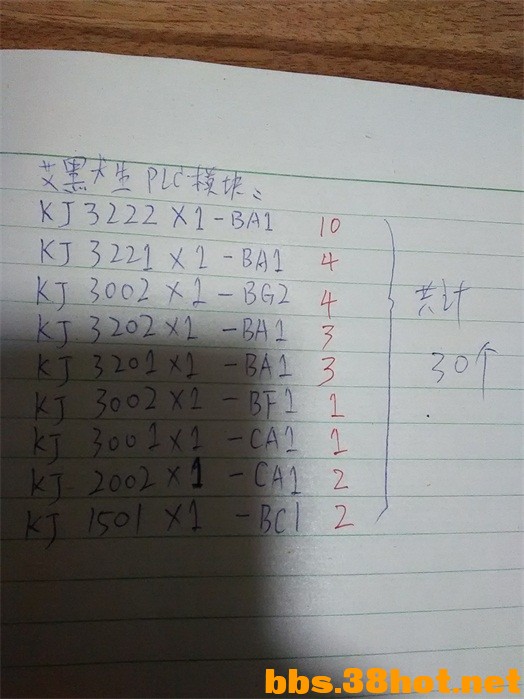 艾黑木生 PLC模块:
KJ 3222 X1-BA1 10
KJ 3221 X1-BA1 4
KJ 3002 X1-BG2 4
KJ 3202 X1-BA1 3
KJ 3201 X1-BA1 3
KJ 3002 X1-BF1 1
KJ 3001 X1-CA1 1
KJ 2002 X1-CA1 2
KJ 1501 X1-BC1 2
共计
30个
bbs.38hot.net